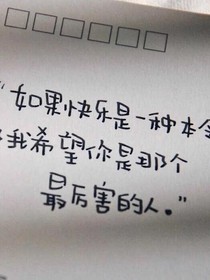 “如果快乐是一种本
我希望你是那个
最厉害的人。”